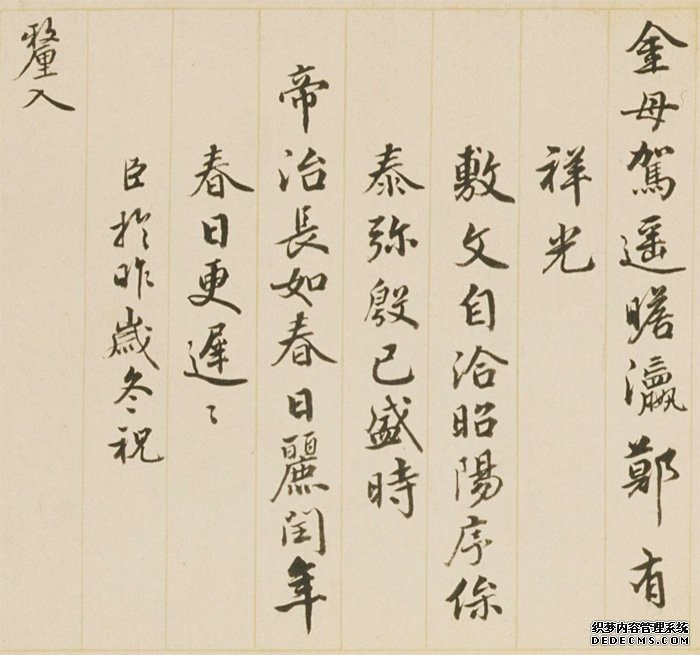 金母駕遥瞻瀛鄚有
祥光
敷文自洽昭陽序保
泰弥殷已盛時
帝治長如春日麗閏年
春日更遲〻
臣於昨歲冬祝
釐入
织梦内容管理系统
DEDECMS.COM